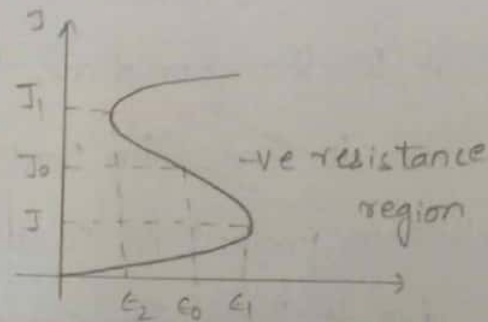 J
J₁
J₀
J
-ve resistance
region
ϵ₂ ϵ₀ ϵ₁